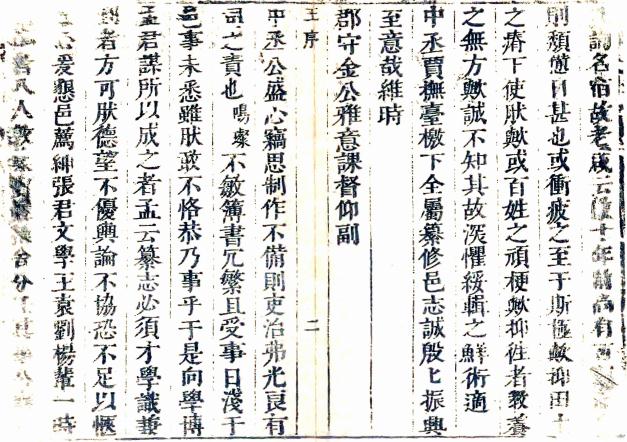 詢名宿故老咸云十年前尚有
則頹憊日甚也或衝疲之至于斯極歟抑田土
之瘠下使肰歟或百姓之頑梗歟抑徃者教養
之無方歟誠不知其故深懼綏輯之鮮術適
中丞賈撫臺檄下全屬纂修邑志誠殷匕振興
至意哉維時
郡守金公雅意課督仰副
王序
二
中丞公盛心竊思制作不備則吏治弗光良有
司之責也鳴璨不敏簿書冗繁且受事日淺于
邑事未悉雖肰敢不恪恭乃事乎于是向學博
孟君謀所以成之者孟云纂志必須才學識兼
者方可肰德望不優輿論不協恐不足以愜
心爰懇邑薦紳張君文學王袁劉楊輩一時
八人